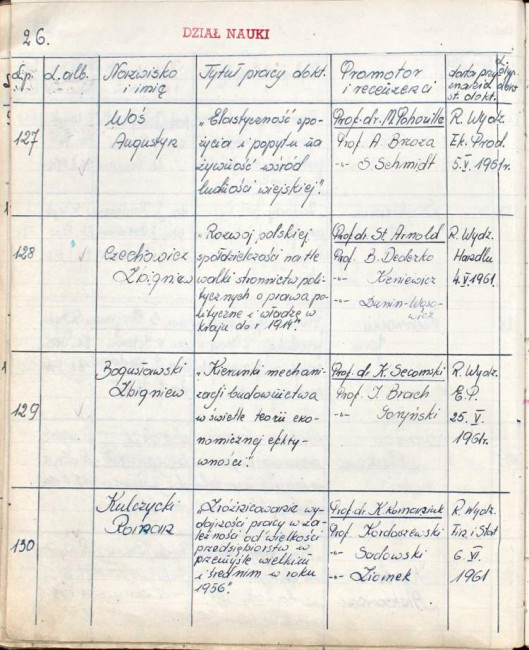 26.
DZIAŁ NAUKI
L.p. L. alb. Nazwisko i imię Tytuł pracy dokt. Promotor i recenzenci data przyznania st. dokt.
127
Woś
Augustyn
"Elastyczność spo-
życia i popytu na
żywność wśród
ludności wiejskiej".
Prof. dr. M. Pohorille
Prof. A. Brzoza
-"- S. Schmidt
R. Wydz.
Ek. Prod.
5.V.1961r.
128
Czechowicz
Zbigniew
"Rozwój polskiej
spółdzielczości na tle
walki stronnictw poli-
tycznych o prawa po-
lityczne i władzę w
kraju do r. 1914".
Prof. dr. St. Arnold
Prof. B. Dederko
-"- Kieniewicz
-"- Dunin-Wąso-
wicz
R. Wydz.
Handlu
4.V.1961.
129
Bogusławski
Zbigniew
"Kierunki mechani-
zacji budownictwa
w świetle teorii eko-
nomicznej efekty-
wności".
Prof. dr K. Secomski
Prof. I. Brach
-"- Goryński
R. Wydz.
E.P.
25. V.
1961r.
130
Kulczycki
"Zróżnicowanie wy-
dajności pracy w za-
leżności od wielkości
przedsiębiorstw w
przemyśle wielkim
i średnim w roku
1956".
Prof. dr K. Romaniuk
Prof. Kordaszewski
-"- Sadowski
-"- Ziomek
R. Wydz.
Fin. i Stat
6. VI.
1961